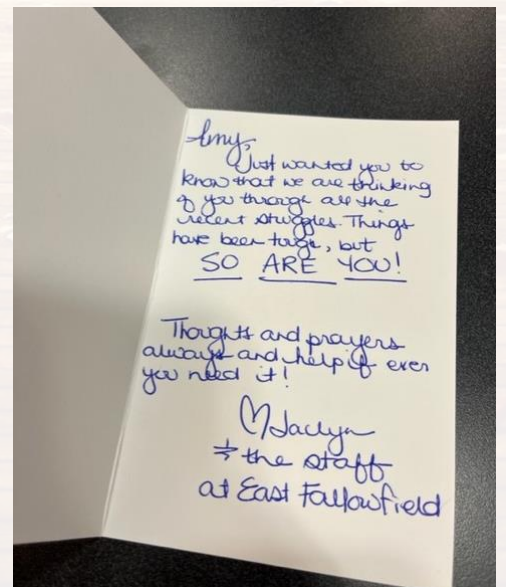 Amy,
Just wanted you to
know that we are thinking
of you through all the
recent struggles. Things
have been tough, but
SO ARE YOU!
Thoughts and prayers
always and help if ever
you need it!
♡ Jaclyn
& the staff
at East Fallowfield